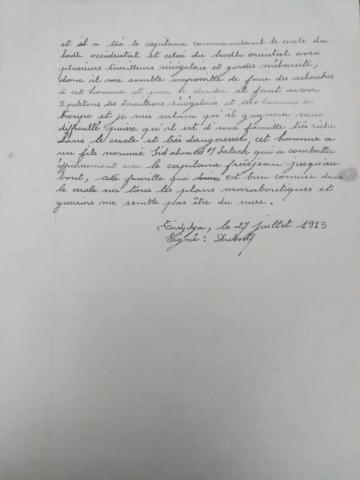 et il a tué le capitaine commandant le cercle du
hodh occidental et celui du hodh oriental avec
plusieurs tirailleurs sénégalais et gardes méhariste,
donc il me semble impossible de faire des recherches
à cet homme et pour le il faut avoir
5 pelotons des tirailleurs sénégalais et 1000 hommes de
troupe et je suis certain qu'il gagnera sans
difficulté puisse qu'il est d'une famille très riche
dans le cercle et très dangereuse, cet homme a
un fils nommé Sid'ahmed qui a combattu
le capitaine frèrejean jusqu'au
bout, cette famille qui est bien connue dans
le cercle sur tous les plans maraboutiques et
guerriers me semble pas être du sucre.
Tidjikja, le 27 juillet 1913
Signé: Dubost